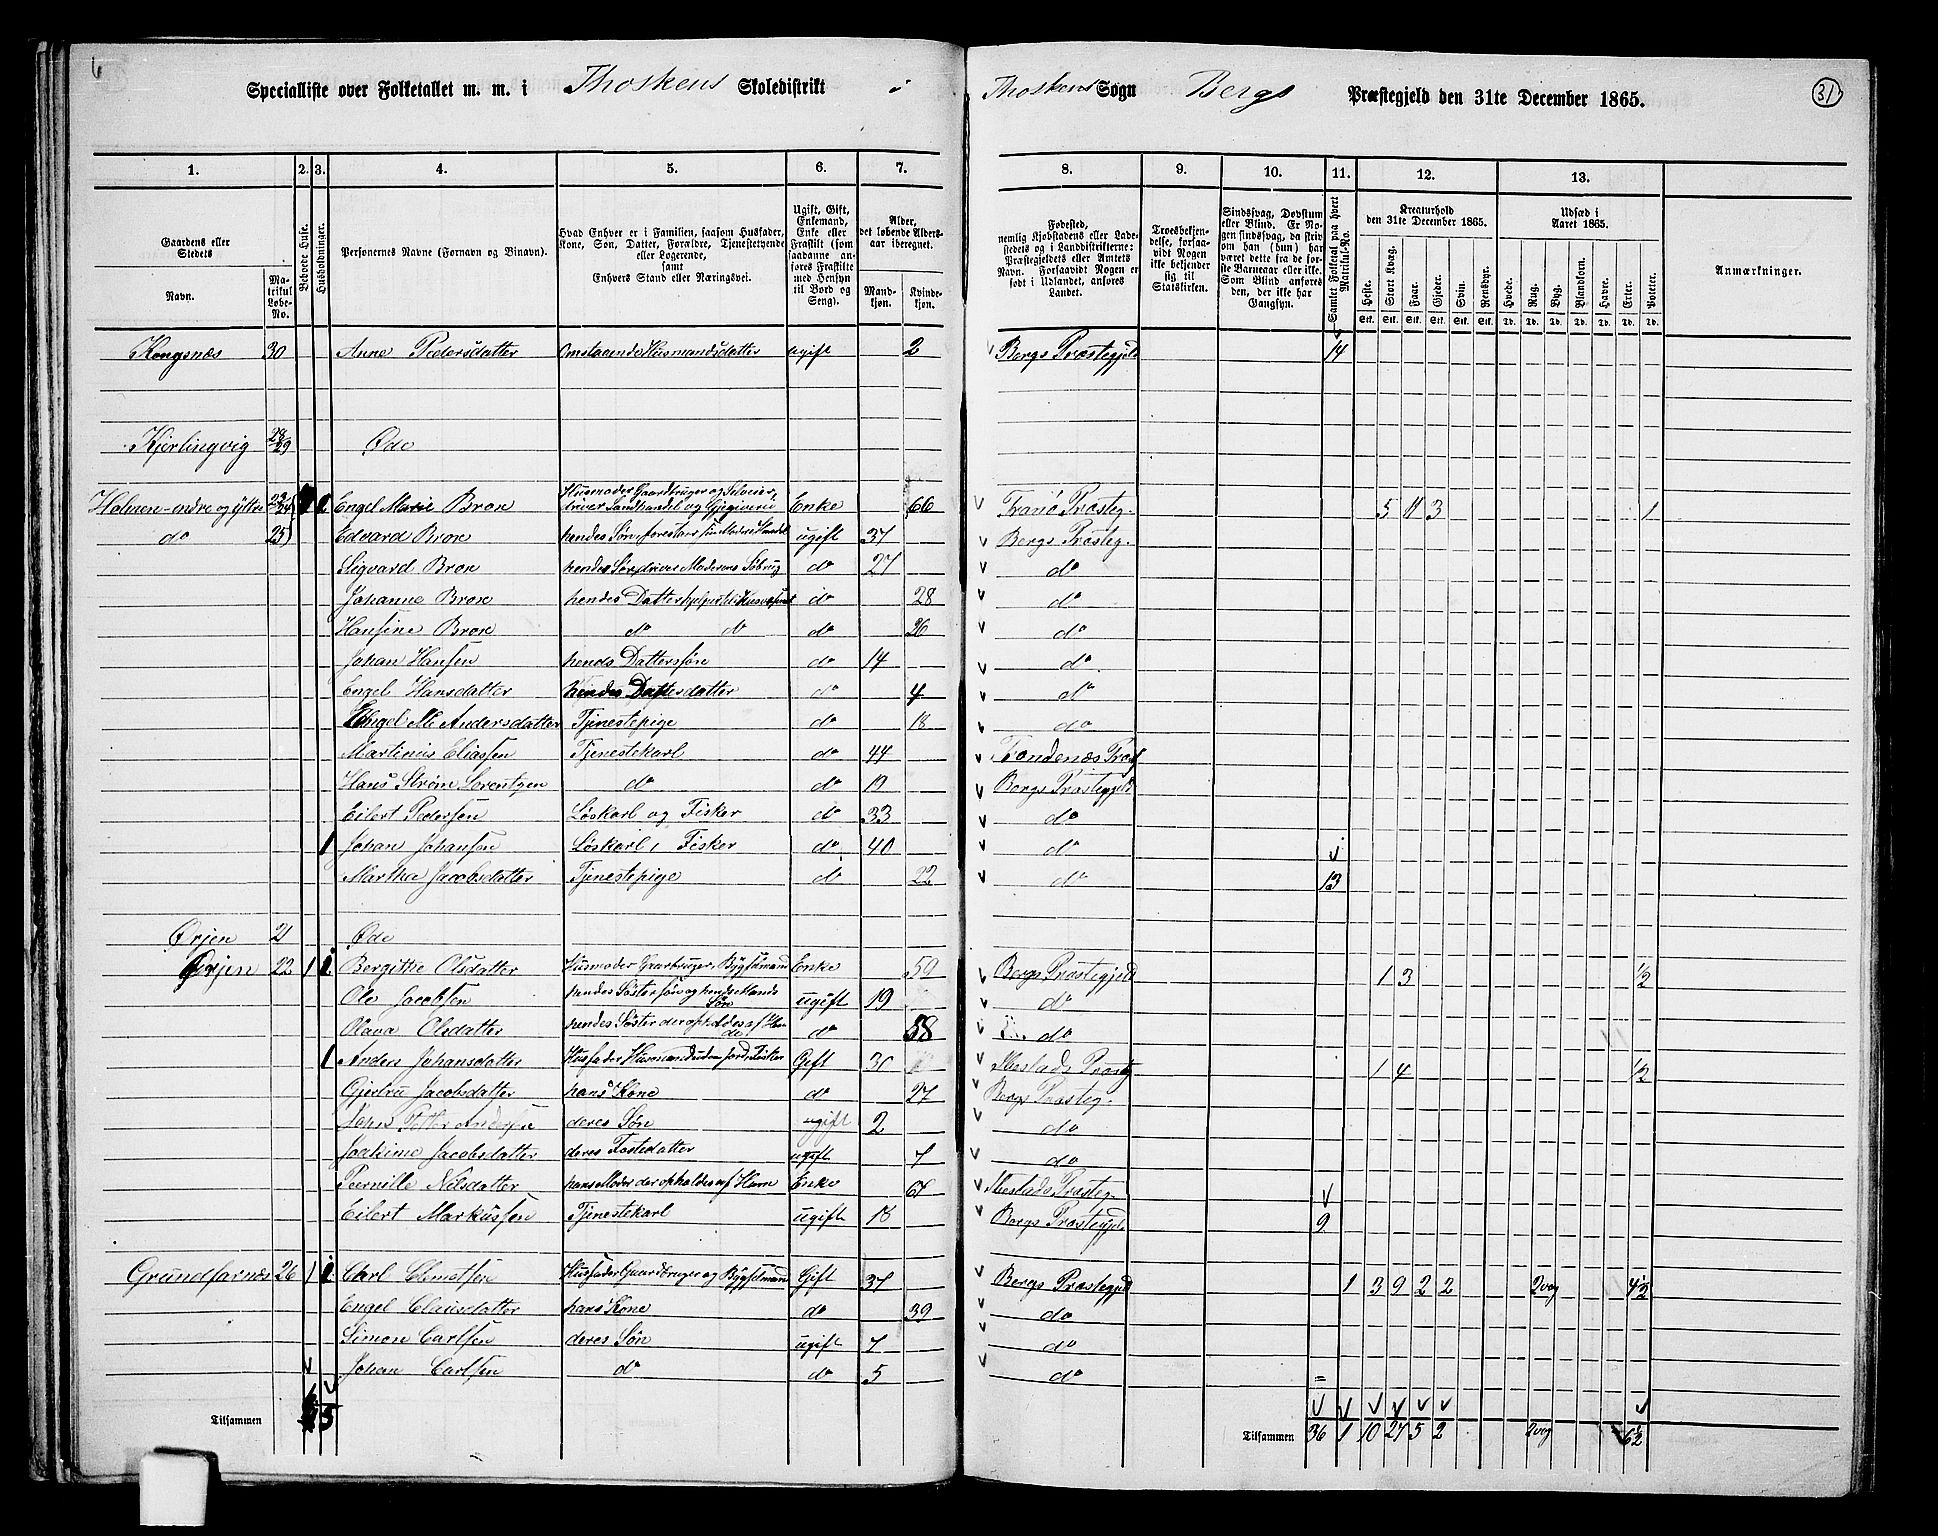 6
Specialliste over Folketallet m. m. i Thoskens Skoledistrikt i
Thoskens Sogn Bergs Præstegjeld den 31te December 1865.
31
1. 2. 3. 4. 5. 6. 7.
8. 9. 10. 11. 12. 13.
Gaardens eller Stedets
Navn.
Matrikul Løbe-No.
Beboede Huse.
Husholdninger.
Personernes Navne (Fornavn og Binavn).
Hvad Enhver er i Familien, saasom Husfader, Kone, Søn, Datter, Forældre, Tjenestetyende eller Logerende, samt Enhvers Stand eller Næringsvei.
Ugift, Gift, Enkemand, Enke eller Fraskilt (som saadanne anføres Fraskilte med Hensyn til Bord og Seng).
Alder, det løbende Aldersaar iberegnet.
Mandkjøn. Kvindekjøn.
Fødested, nemlig Kjøbstadens eller Ladestedets og i Landdistrikterne: Præstegjeldets eller Amtets Navn. Forsaavidt Nogen er født i Udlandet, anføres Landet.
Troesbekjendelse, forsaavidt Nogen ikke bekjender sig til Statskirken.
Sindssvag, Døvstum eller Blind. Er Nogen sindssvag, da skrives om han (hun) har været dette fra de første Barneaar eller ikke. Som Blind anføres den, der ikke har Gangsyn.
Samlet Folketal paa hvert Matrikul-No.
Kreaturhold den 31te December 1865.
Heste. Stort Kvæg. Faar. Gjeder. Svin. Rensdyr.
Stk. Stk. Stk. Stk. Stk. Stk.
Udsæd i Aaret 1865.
Hvede. Rug. Byg. Blandkorn. Havre. Erter. Poteter.
Td. Td. Td. Td. Td. Td. Td.
Anmærkninger.
Kongsnæs 30 Anne Pedersdatter Omstaaende Husmandsdatter ugift 2 Bergs Præstegjeld 14
Kjerlingvig 28/29 Øde
Holmen-indre og yttre 23/24 Engel Marie Brox Husmoder Gaardbruger og Selveier, driver Landhandel og Gjestgiveri Enke 66 Tranø Præsteg. 5 11 3 1
do 25 Edvard Brox hendes Søn, forestaar sin Moders Handel ugift 37 Bergs Præsteg.
Sigvard Brox hendes Søn, driver Moderens Søbrug do 27 do
Johanne Brox hendes Datter hjelper til i Huusvæsenet do 28 do
Hansine Brox do do do 26 do
Johan Hansen hends Dattersøn do 14 do
Engel Hansdatter hendes Dattesdatter do 4 do
Engel M Andersdatter Tjenestepige do 18 do
Martinus Eliassen Tjenestekarl do 44 Trondenæs Præst
Hans Strøm Lorentzen do do 19 Bergs Præstegjeld
Eilert Pedersen Løskarl og Fisker do 33 do
1 Johan Johansen Løskarl, Fisker do 40 do
Martha Jacobsdatter Tjenestepige do 22 do 13
Ørjen 21 Øde
Ørjen 22 1 1 Bergithe Olsdatter Husmoder Gaarbruger, Bygselmand Enke 59 Bergs Præstegjeld 1 3 1/2
Ole Jacobsen hendes Søstersøn og hendes Mands Søn ugift 19 do
Olava Olsdatter hendes Søster der opholdes af Hende do 58 do
1 Anden Johansdatter Husfader Husmand uden Jord, Fisker Gift 30 Ibestads Præsteg 1 4 1/2
Gjertru Jacobsdatter hans Kone do 27 Bergs Præsteg.
Jens Petter Andersen deres Søn ugift 2 do
Joakime Jacobsdatter deres Fostedatter ugift 7 do
Peernille Nilsdatter hans Moder der opholdes af Ham Enke 67 Ibestads Præsteg.
Eilert Markussen Tjenestekarl ugift 18 Bergs Præstegjel 9
Grundfarnæs 26 1 1 Carl Clemetsen Husfader Gaardbruger og Bygselmand Gift 37 Bergs Præstegjeld 1 3 9 2 2 2 vog 4 1/2
Engel Clausdatter hans Kone do 39 do
Simon Carlsen deres Søn ugift 7 do
Johan Carlsen do do 5 do
Tilsammen 5
Tilsammen 36 1 10 27 5 2 2 vog 6 1/2